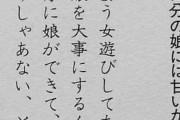 分の娘には甘いか
う女遊びしてき
娘を大事にする
に娘ができて、
じゃあない、